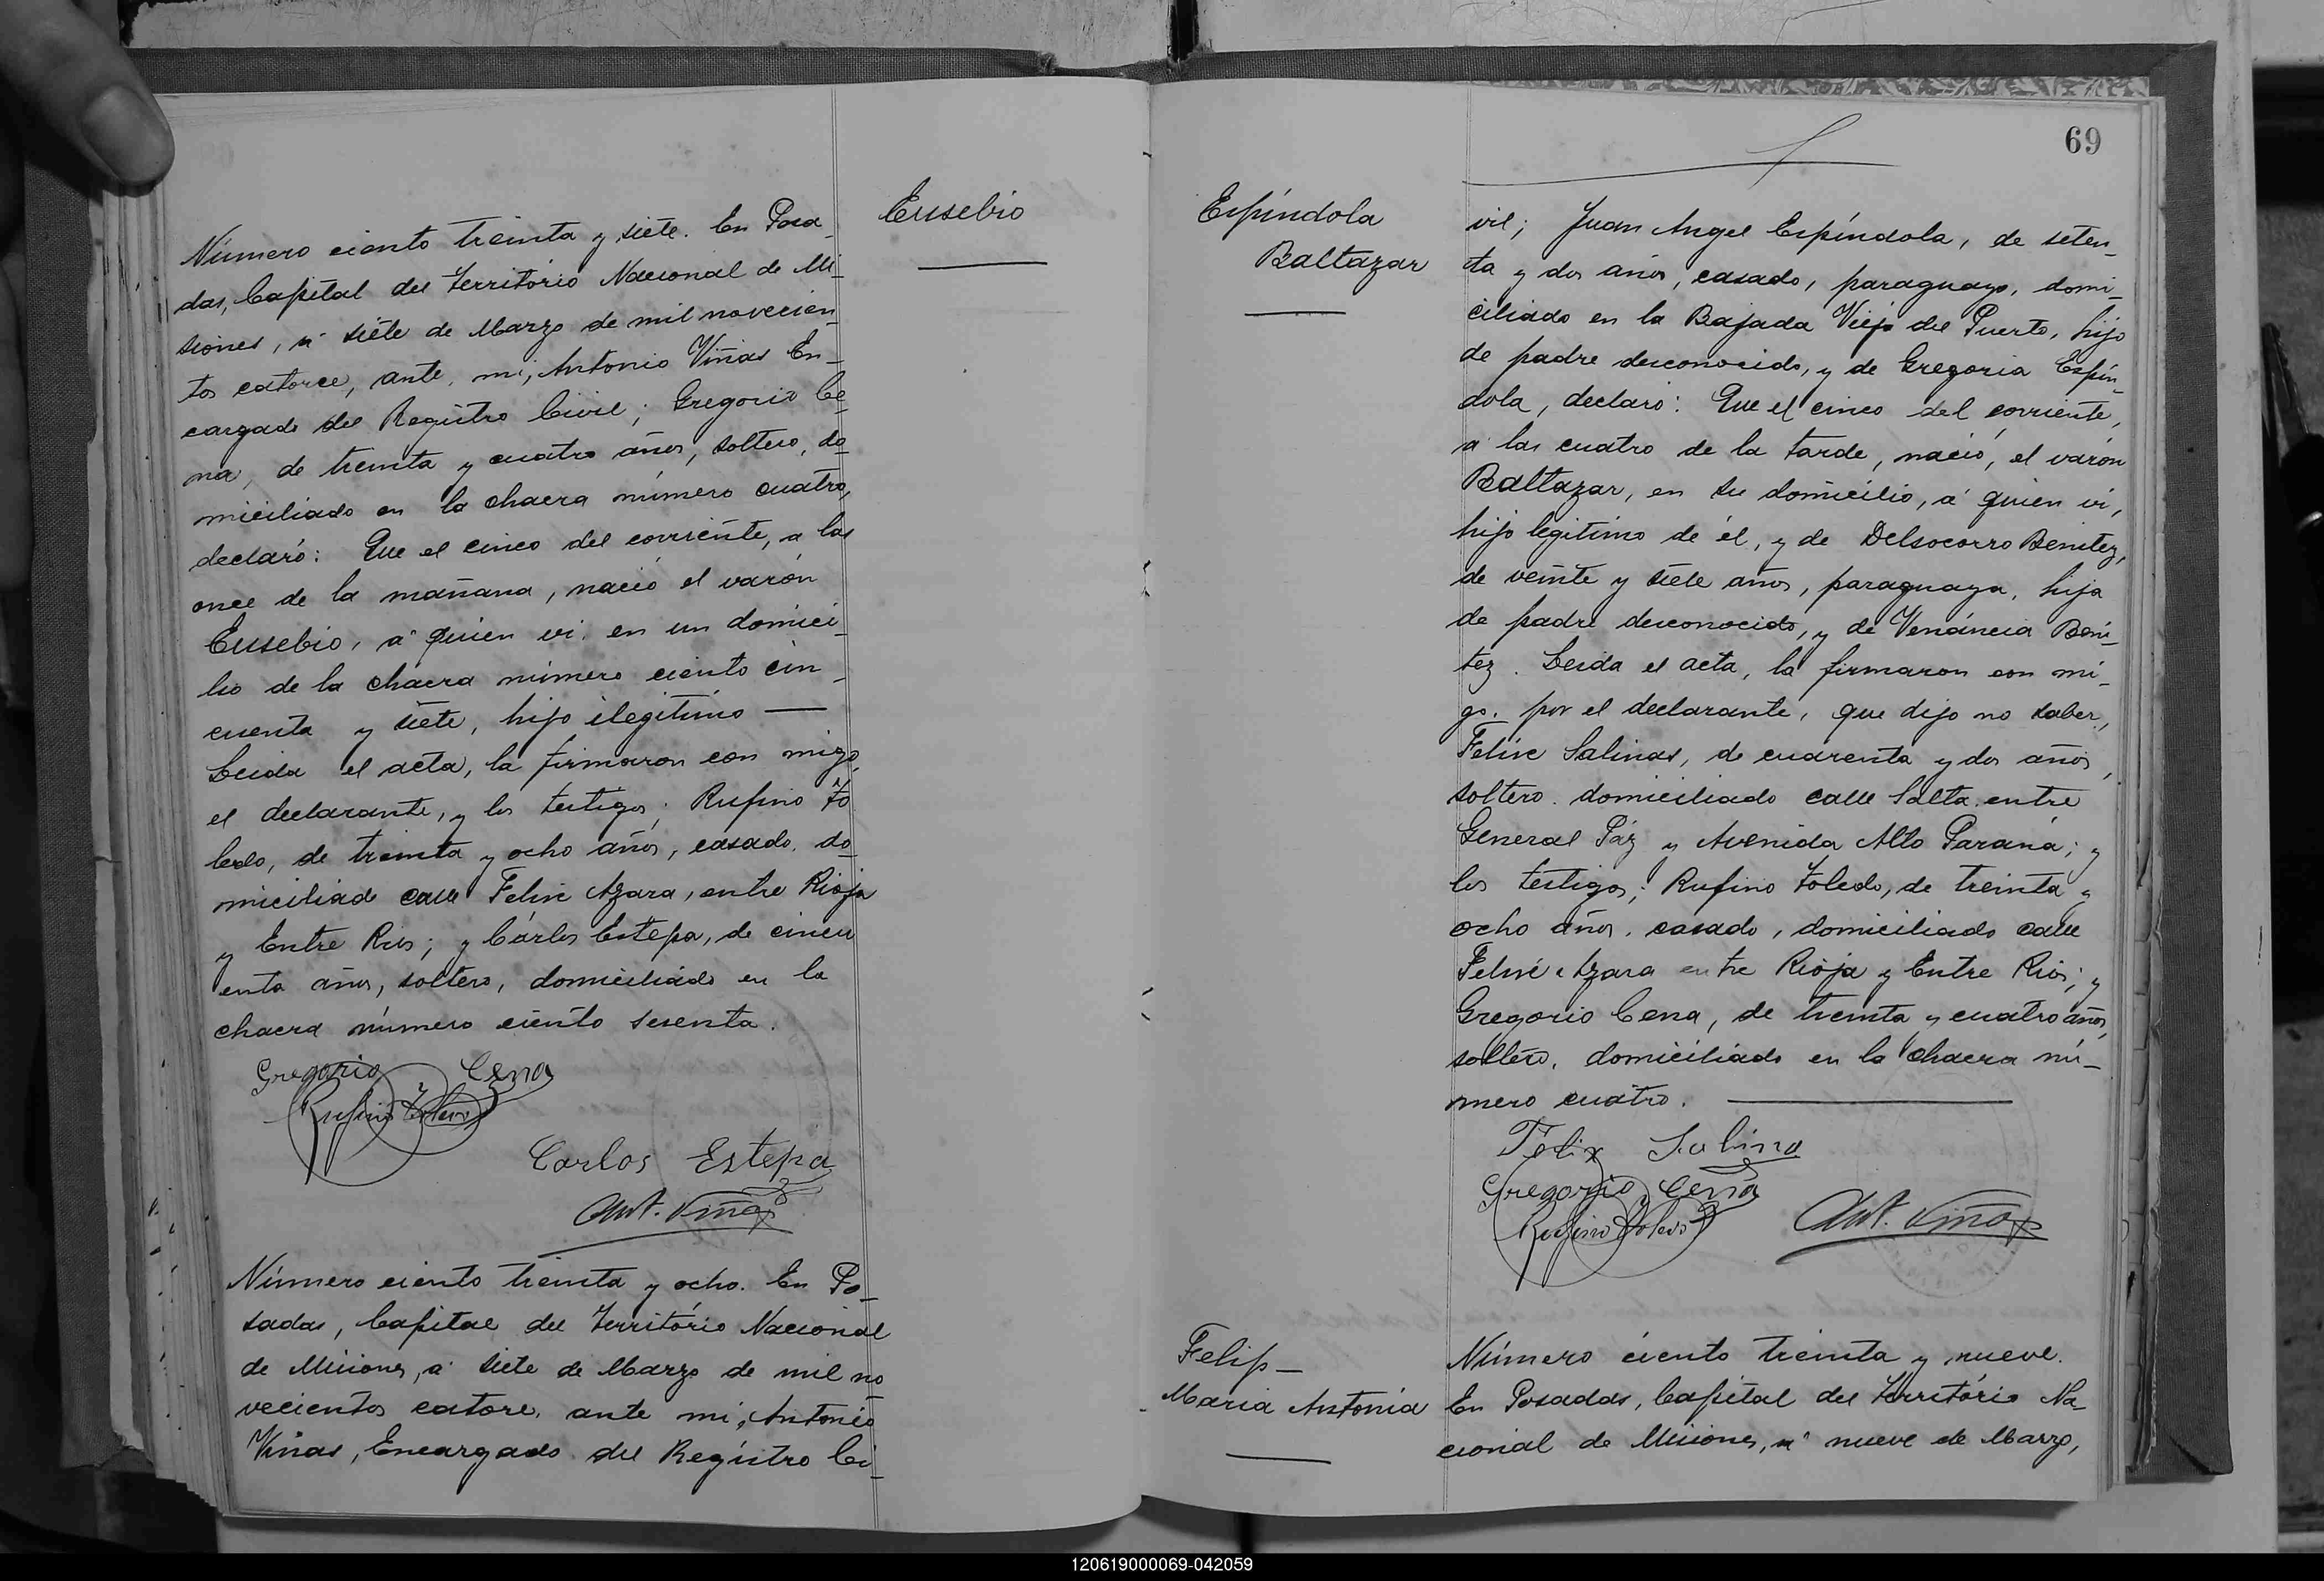 Eusebio
Número ciento treinta y siete. En Posa_
das, Capital del Território Nacional de Mi_
siones, á siete de Marzo de mil novecien_
tos catorce, ante, mi, Antonio Viñas En_
cargado del Registro Civil; Gregorio Ce_
na, de treinta y cuatro años, soltero, do_
miciliado en la chacra número cuatro,
declaró: Que el cinco del corriente, a las
once de la mañana, nació el varón
Eusebio, á quien vi, en un domici_
lio de la chacra número ciento cin_
cuenta y siete, hijo ilegitimo —
Leida el acta, la firmaron con migo,
el declarante, y los testigos; Rufino To_
ledo, de treinta y ocho años, casado, do_
miciliado calle Felix Azara, entre Rioja
y Entre Rios; y Cárlos Estepa, de cincu
enta años, soltero, domiciliado en la
chacra número ciento sesenta.
Gregorio Cena
Rufino Toledo
Carlos Estepa
Ant. Viñas
Número ciento treinta y ocho. En Po_
sadas, Capital del Território Nacional
de Misiones, á siete de Marzo de mil no_
vecientos catorce, ante mi, Antonio
Viñas, Encargado del Registro Ci_
69
Espíndola
Baltazar
vil; Juan Angel Espíndola, de seten_
ta y dos años, casado, paraguayo, domi_
ciliado en la Bajada Vieja del Puerto, hijo
de padre desconocido, y de Gregoria Espín_
dola, declaró: Que el cinco del corriente,
á las cuatro de la tarde, nació, el varón
Baltazar, en su domicilio, á quien vi,
hijo legitimo de él, y de Delsocorro Benitez,
de veinte y siete años, paraguaya, hija
de padre desconocido, y de Venáncia Beni_
tez. Leida el acta, la firmaron con mi_
go, por el declarante, que dijo no saber,
Felix Salinas, de cuarenta y dos años,
soltero. domiciliado calle Salta entre
General Páz y Avenida Alto Paraná; y
los testigos; Rufino Toledo, de treinta y
ocho años, casado, domiciliado calle
Felix Azara entre Rioja y Entre Rios; y
Gregorio Cena, de treinta y cuatro años,
soltero, domiciliado en la chacra nú_
mero cuatro.
Felix Salina
Gregorio Cena
Rufino Toledo
Ant. Viñas
Felip_
Maria Antonia
Número ciento treinta y nueve.
En Posadas, Capital del Território Na_
cional de Misiones, á nueve de Marzo,
120619000069-042059